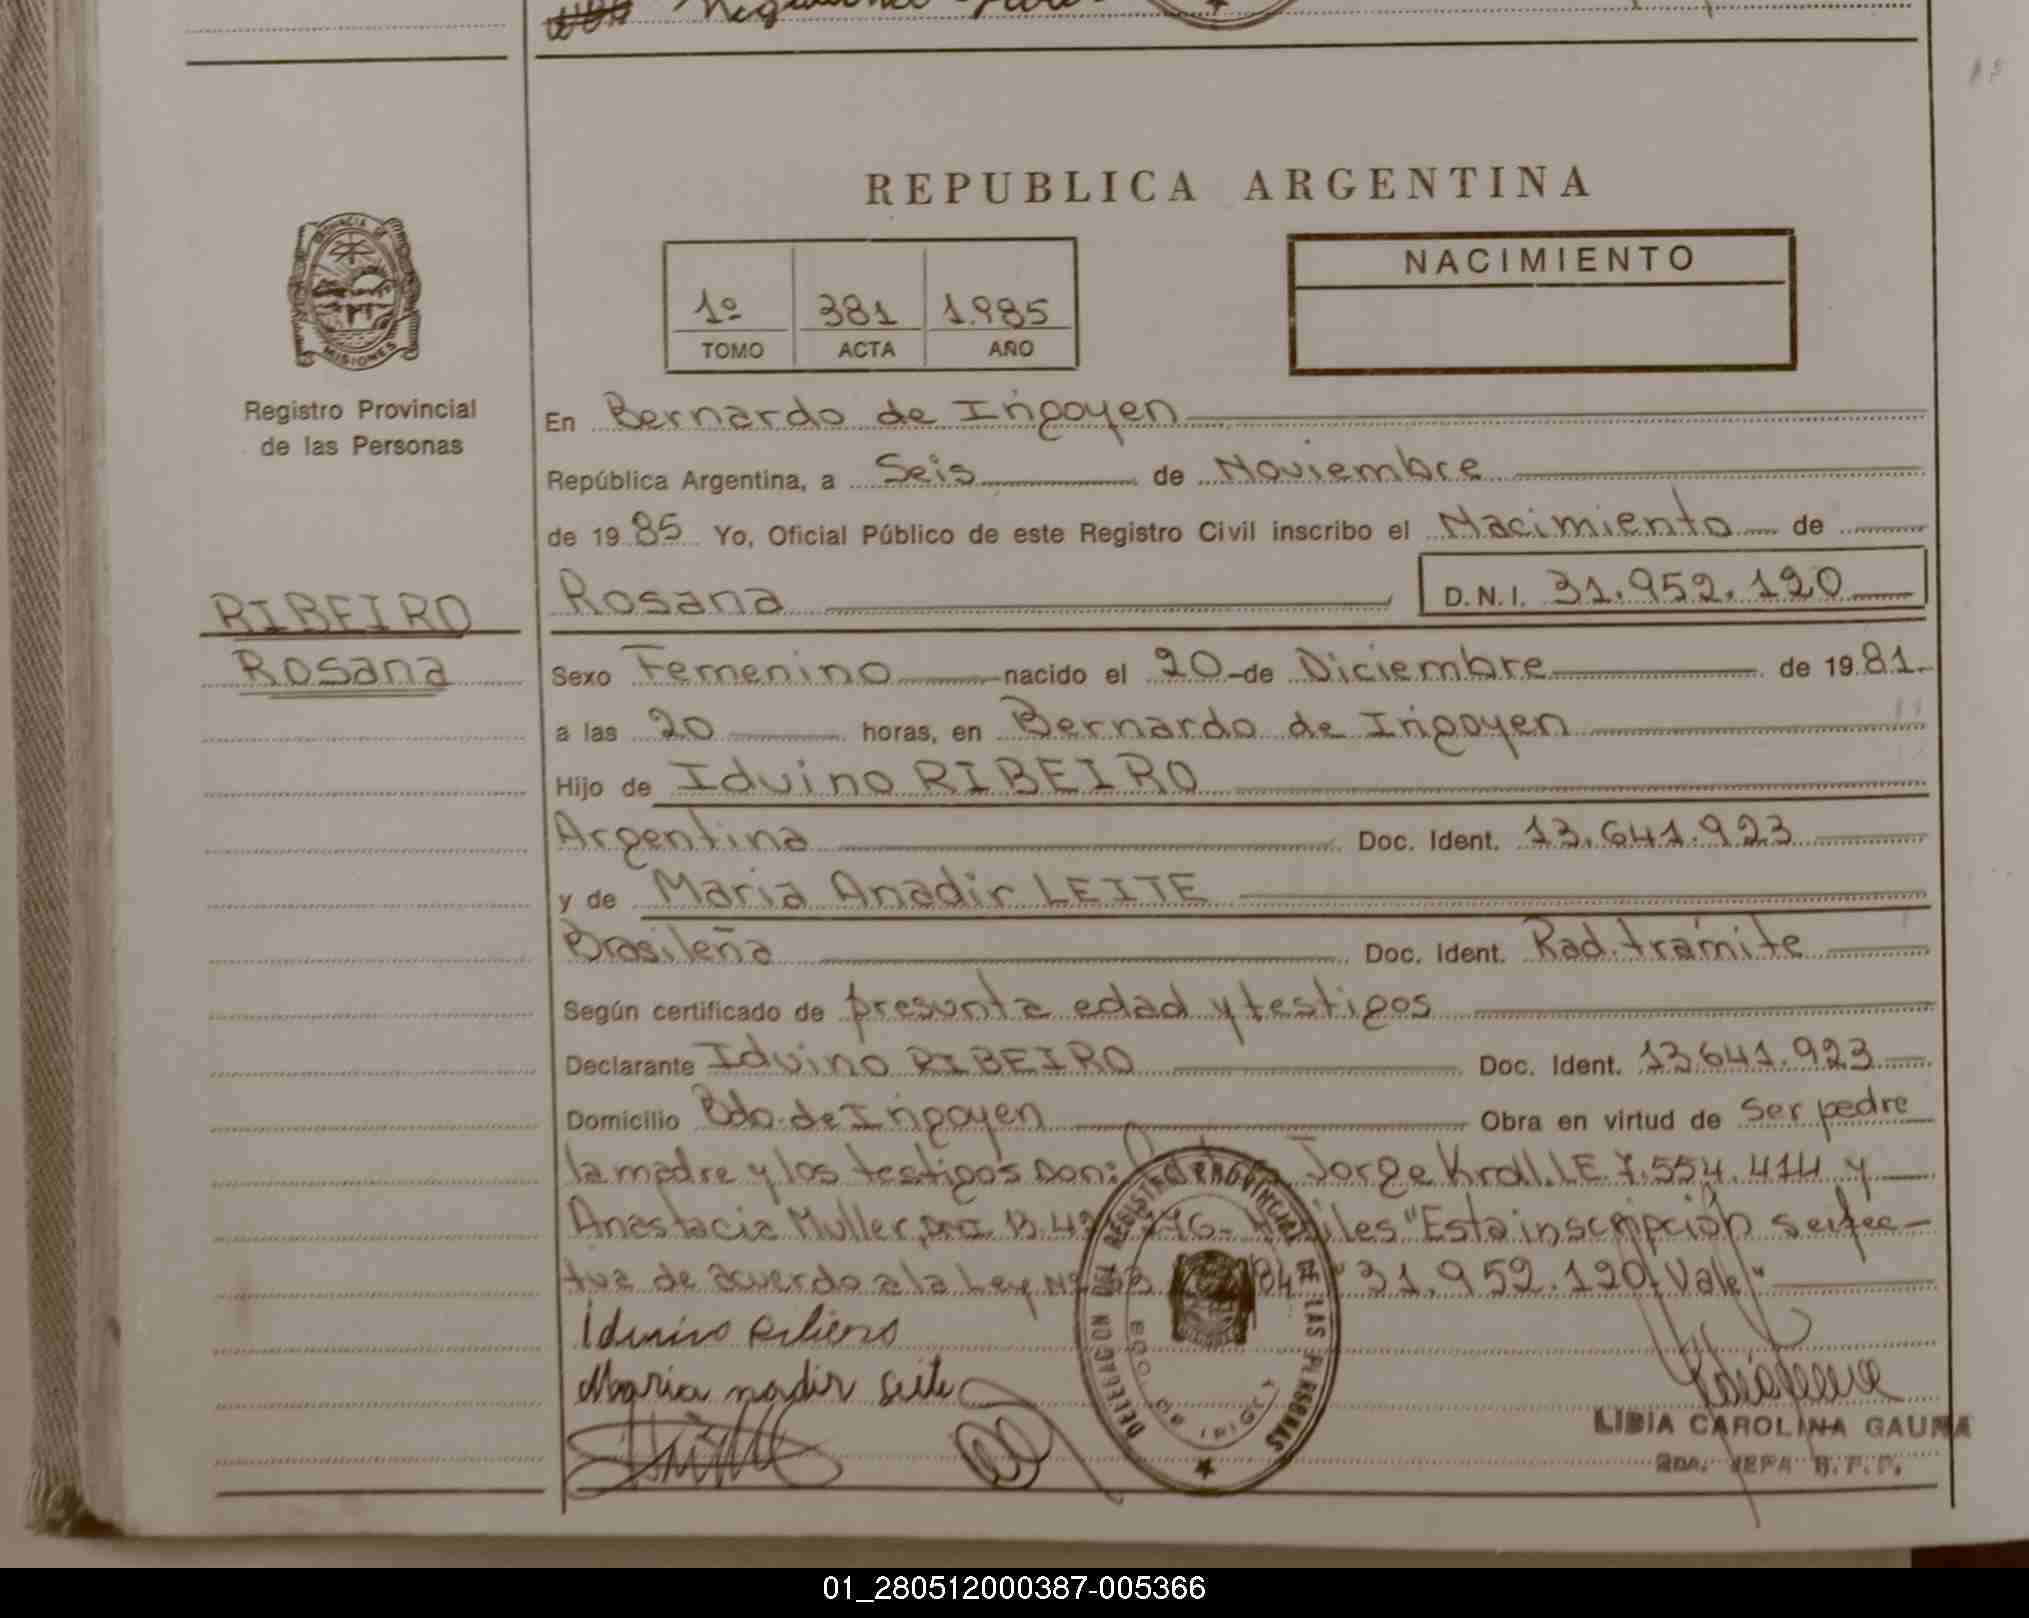 REPUBLICA ARGENTINA
PROVINCIA DE
MISIONES
Registro Provincial
de las Personas
1º 381 1.985
TOMO ACTA AÑO
NACIMIENTO
En Bernardo de Irigoyen
República Argentina, a Seis de Noviembre
de 19 85 Yo, Oficial Público de este Registro Civil inscribo el Nacimiento de
Rosana D.N.I. 31.952.120
RIBEIRO
Rosana
Sexo Femenino nacido el 20 de Diciembre de 19 81.
a las 20 horas, en Bernardo de Irigoyen
Hijo de Iduino RIBEIRO
Argentina Doc. Ident. 13.641.923
y de Maria Anadir LEITE
Brasileña Doc. Ident. Rad. trámite
Según certificado de presunta edad y testigos
Declarante Iduino RIBEIRO Doc. Ident. 13.641.923
Domicilio Bdo. de Irigoyen Obra en virtud de ser padre
la madre y los testigos Don: Jorge Krall. LE 7.554.414 y
Anastacia Muller, DNI. 13.4 "Esta inscripción se efec-
tua de acuerdo a la Ley Nº "31.952.120, Vale"
Iduino Ribiero
Maria nadir Leite
DELEGACION DEL REGISTRO PROVINCIAL DE LAS PERSONAS
BDO. DE IRIGOY
LIDIA CAROLINA GAUNA
2DA. JEFA R.P.P.
01_280512000387-005366